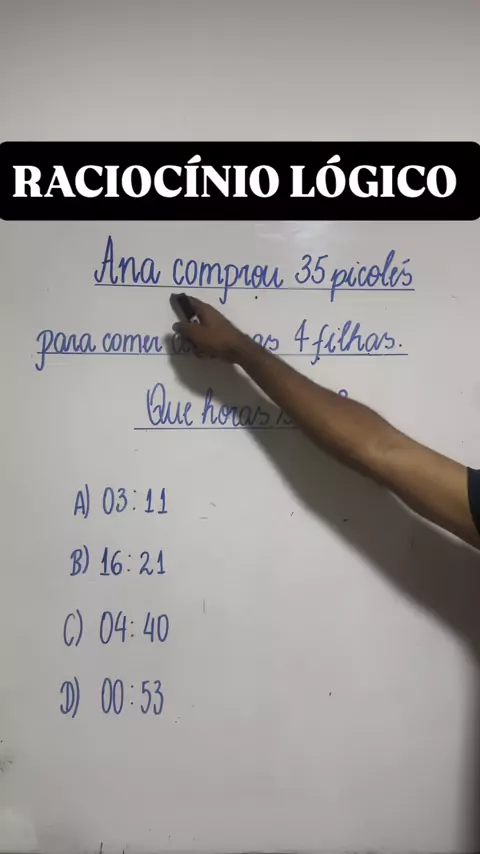 RACIOCÍNIO LÓGICO
Ana comprou 35 picolés
para comer 4 filhas.
Que horas
A) 03:11
B) 16:21
C) 04:40
D) 00:53